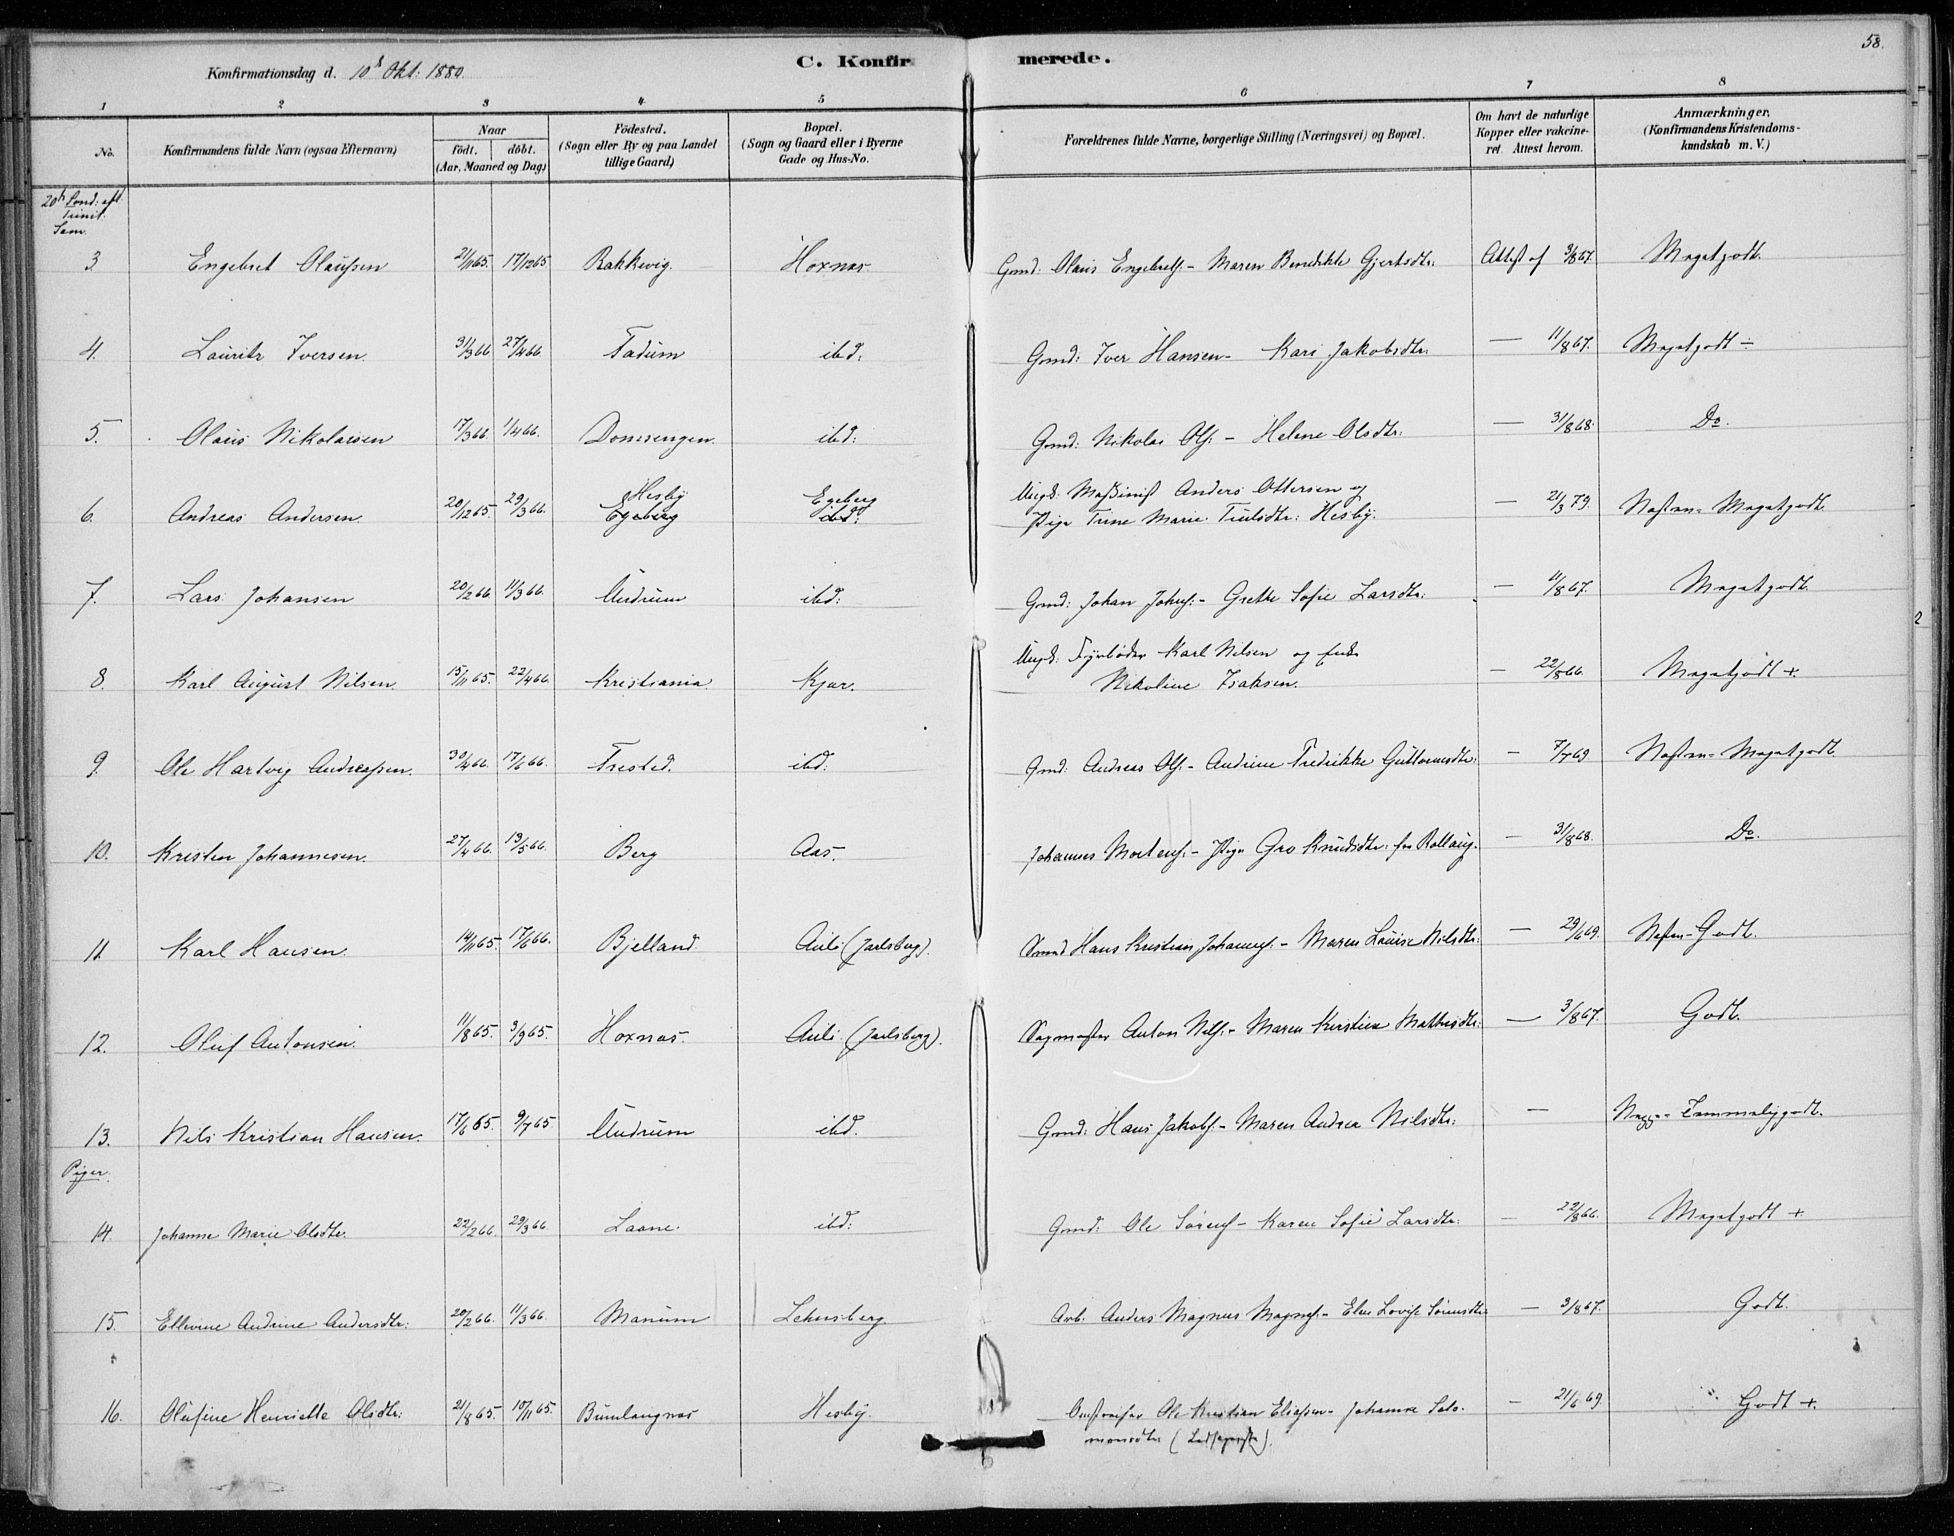 58.
Konfirmationsdag d. 10d Okt: 1880.
C. Konfirmerede.
1 2 3 4 5 6 7 8
No.
Konfirmandens fulde Navn (ogsaa Efternavn)
Naar
födt. döbt.
(Aar, Maaned og Dag)
Födested.
(Sogn eller By og paa Landet
tillige Gaard)
Bopæl.
(Sogn og Gaard eller i Byerne
Gade og Hus-No.
Forældrenes fulde Navne, borgerlige Stilling (Næringsvei) og Bopæl.
Om havt de naturlige
Kopper eller vakcine-
ret. Attest herom.
Anmærkninger.
(Konfirmandens Kristendoms-
kundskab m. V.)
20d Sönd: eft.
Trinit:
Sem.
3. Engebret Olaussen 2/11 65. 17/12 65 Bakkevig. Hoxnas. Gmd: Olaus Engebrets: - Maren Benedikte Gjertsdtr: Attest af 3/8 67. Megetgodt.
4. Lauritz Iversen. 31/3 66 27/4 66. Fadum ibd: Gmd: Iver Hansen - Kari Jakobsdtr: — 11/8 67. Megetgodt ÷
5. Olaus Nikolaisen 17/3 66. 1/4 66. Domsengen. ibd: Gmd: Nikolai Ols: - Helene Olsdtr: — 31/8 68. Do.
6. Andreas Andersen. 20/12 65. 29/3 66. Hesby Egeberg Egeberg ibd: Ungk: Maskinist Anders Ottersen og
Pige Trine Marie Hesby. — 21/3 79. Næsten-Megetgodt.
7. Lars Johansen 20/2 66 11/3 66. Undrum ibd: Gmd: Johan Johns: - Grethe Sofie Larsdtr: — 11/8 67. Megetgodt.
8. Karl August Nilsen. 15/11 65. 22/4 66. Kristiania. Kjær. Ungk: Fyrböder Karl Nilsen og
Nikoline Isaksen. — 22/8 66. Megetgodt +.
9. Ole Hartvig Andreassen. 30/4 66. 17/6 66. Frested. ibd: Gmd: Andreas Ols: - Andrine Fredrikke Guttormsdtr: — 7/7 69 Næsten-Megetgodt.
10. Kristen Johannesen. 27/4 66. 13/5 66. Berg Aas. Johannes Mortens: - Pige Gro Knudsdtr: fra Rollaug. — 31/8 68. Do.
11. Karl Hansen. 14/11 65. 17/6 66. Bjelland Auli (Jarlsberg). Hans Kristian Johannes: - Maren Louise Nilsdtr: — 29/6 69. Næsten-Godt.
12. Oluf Antonsen. 11/8 65. 3/9 65. Hoxnas. Auli (Jarlsberg). Sagmester Anton Nils: - Maren Kirstine Mathisdtr: — 3/8 67. Godt.
13. Nils Kristian Hansen. 17/6 65. 9/7 65 Undrum ibd. Gmd: Hans Jakobs: - Maren Andrea Nilsdtr: —
Piger.
14. Johanne Marie Olsdtr. 22/2 66. 29/3 66 Laane. ibd: Gmd: Ole Sörens: - Karen Sofie Larsdtr: — 22/8 66. Megetgodt +
15. Ellevine Andrine Andersdtr: 20/2 66. 11/3 66. Manum Lensberg Arb. Anders Magnus Magns: - Elen Lovise Sörensdtr — 3/8 67. Godt.
16. Olufine Henriette Olsdtr: 21/8 65. 10/11 65. Bumlangnas Hesby. Ole Kristian Eliassen - Johanne Salo-
monsdtr — 21/6 69 Godt +.
2